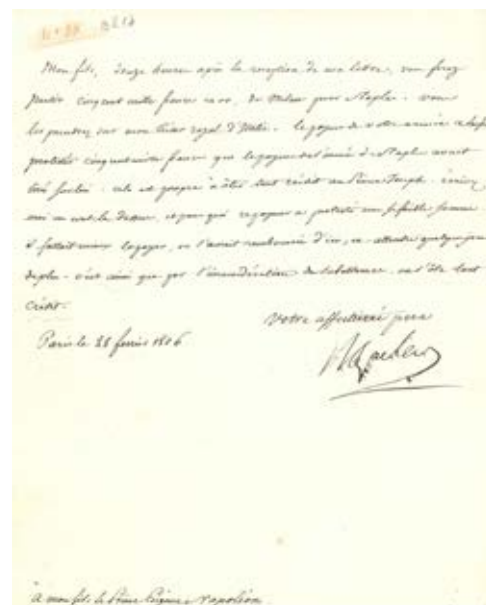 Mon fils, douze heures après la reception de ma lettre, vous ferez
partir cinq cent mille francs en or, de Milan pour Naples. vous
les prendrez sur mon trésor royal d'Italie. le payeur de votre armée a
protesté cinquante mille francs que le payeur de l'armée de Naples avait
tiré sur lui. cela est propre à ôter tout crédit au Prince Joseph. écrivez
moi en et pour quoi ce payeur a protesté une si faible somme.
il fallait mieux le payer, on l'aurait remboursé d'ici, ou attendre quelques jours
de plus. c'est ainsi que par l'inconsidération des subalternes, on s'ôte tout
crédit.
Votre affectionné père
Paris le 28 février 1806
Napoléon
à mon fils le Prince Eugène Napoléon.